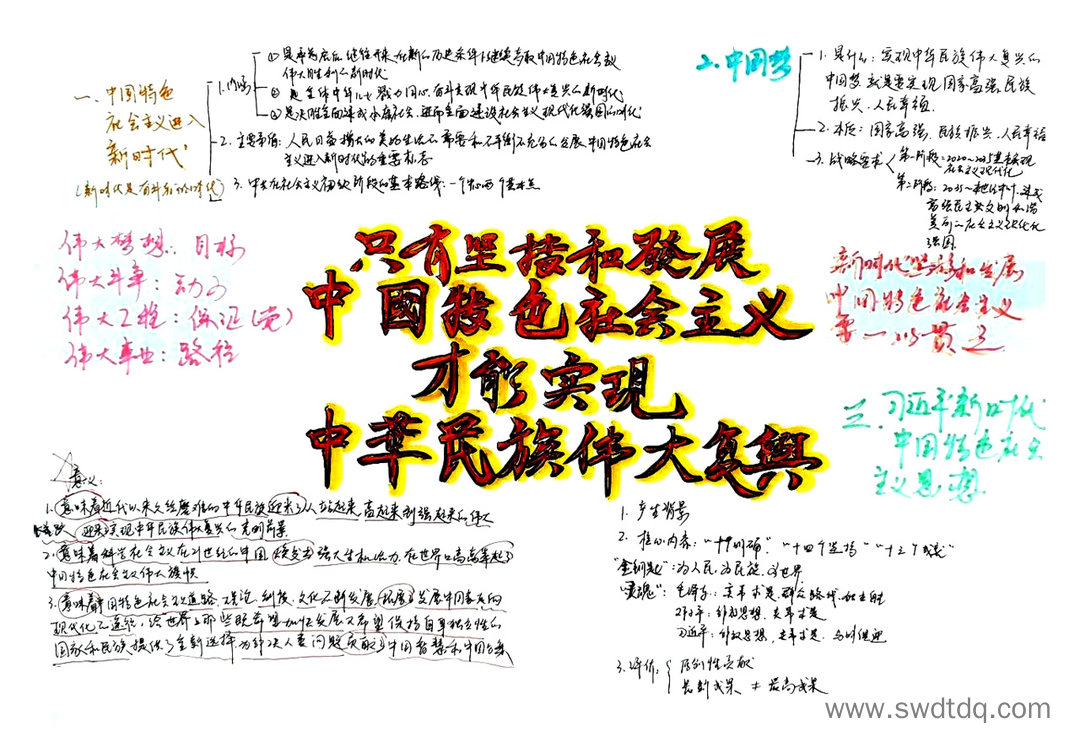 一、中国特色
社会主义进入
新时代
(新时代是奋斗者的时代)
1.内涵
①是承前启后、继往开来、在新的历史条件下继续夺取中国特色社会主义
伟大胜利的新时代
②是全体中华儿女勠力同心、奋斗实现中华民族伟大复兴的新时代
③是决胜全面建成小康社会、进而全面建设社会主义现代化强国的时代
2.主要矛盾:人民日益增长的美好生活需要和不平衡不充分的发展 中国特色社会
主义进入新时代的重要标志
3.中共在社会主义初级阶段的基本路线:一个中心两个基本点
二.中国梦
1.是什么:实现中华民族伟大复兴的
中国梦就是要实现国家富强、民族
振兴、人民幸福.
2.本质:国家富强、民族振兴、人民幸福
3.战略安排
第一阶段:2020~2035基本实现
社会主义现代化
第二阶段:2035~本世纪中叶,建成
富强民主文明和谐
美丽的社会主义现代化
强国.
伟大梦想:目标
伟大斗争:动力
伟大工程:保证(党)
伟大事业:路径
只有坚持和發展
中國特色社会主义
才能实現
中華民族伟大复興
新时代坚持和发展
中国特色社会主义
要一以贯之
三.习近平新时代
中国特色社会
主义思想
意义:
1.意味着近代以来久经磨难的中华民族迎来了从站起来、富起来到强起来的伟大
飞跃 迎来了实现中华民族伟大复兴的光明前景
2.意味着科学社会主义在21世纪的中国焕发出强大生机活力,在世界上高高举起了
中国特色社会主义伟大旗帜
3.意味着中国特色社会主义道路、理论、制度、文化不断发展,拓展了发展中国家走向
现代化的途径,给世界上那些既希望加快发展又希望保持自身独立性的
国家和民族提供了全新选择,为解决人类问题贡献了中国智慧和中国方案
1.产生背景
2.核心内容:"十个明确""十四个坚持""十三个成就"
"金钥匙":为人民、为民族、为世界
"灵魂":毛泽东:实事求是、群众路线、独立自主
邓小平:解放思想、实事求是
习近平:解放思想、实事求是、与时俱进
3.评价:
原创性贡献
最新成果≠最高成果
www.swdtdq.com